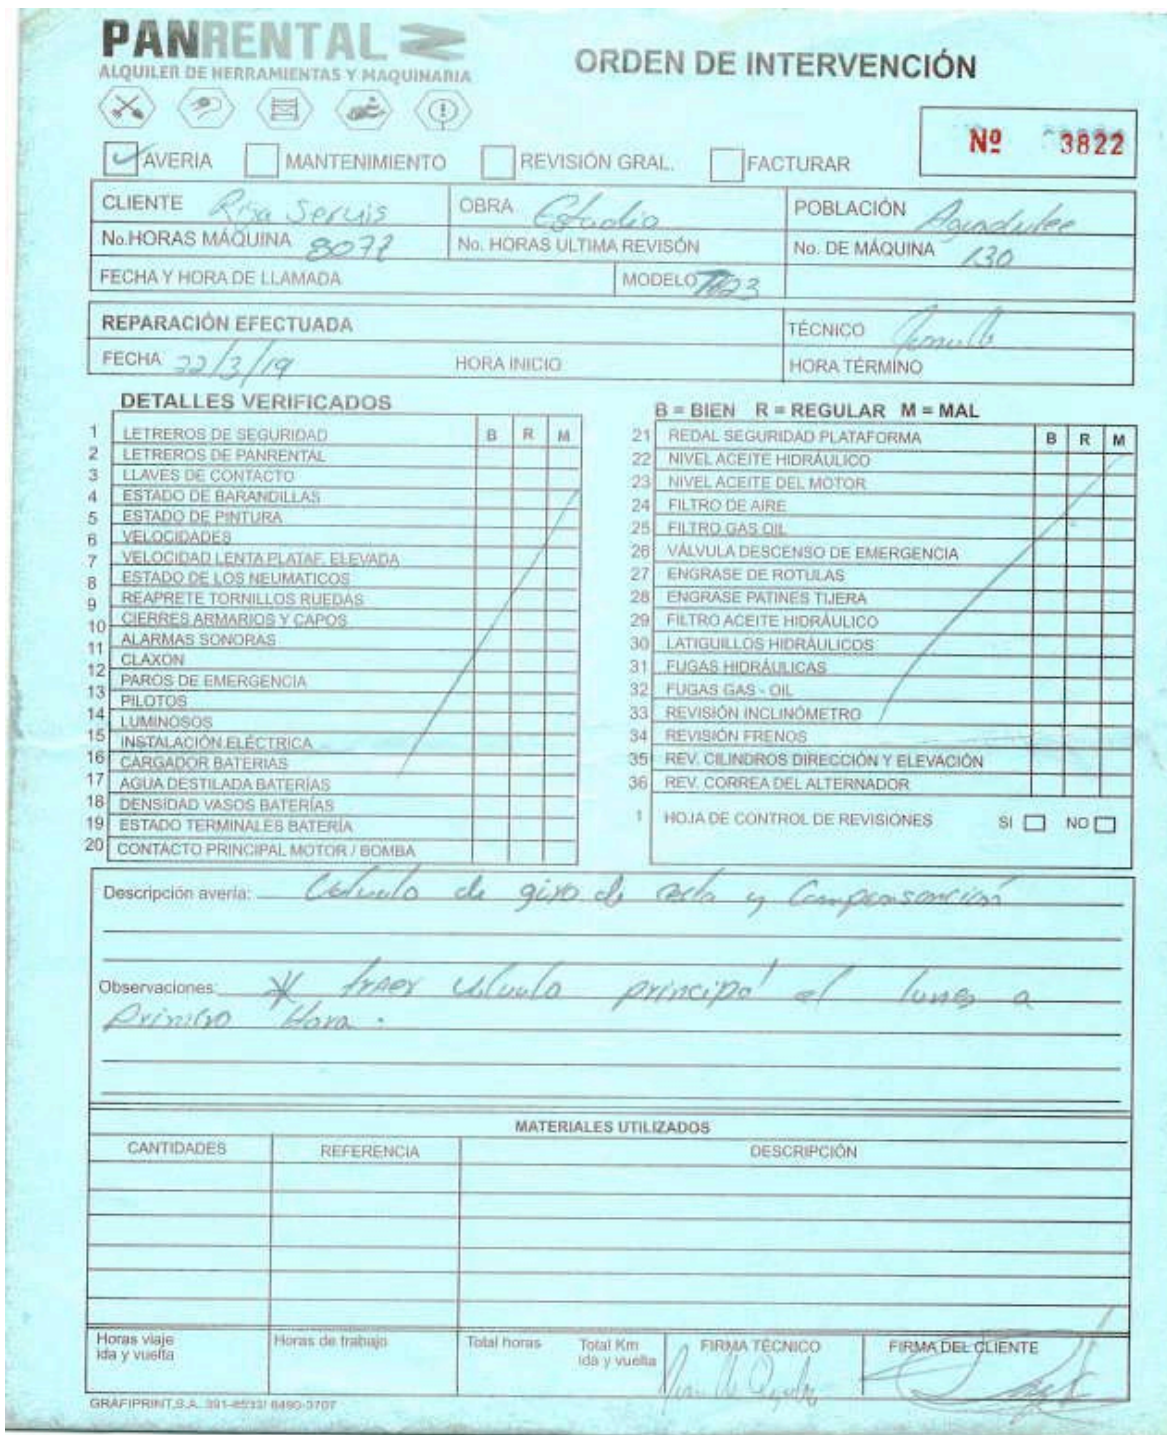 PANRENTAL
ALQUILER DE HERRAMIENTAS Y MAQUINARIA
ORDEN DE INTERVENCIÓN
Nº 3822
AVERIA MANTENIMIENTO REVISIÓN GRAL. FACTURAR
CLIENTE OBRA Estadio POBLACIÓN Aguadulce
No.HORAS MÁQUINA No. HORAS ULTIMA REVISÓN No. DE MÁQUINA 130
FECHA Y HORA DE LLAMADA MODELO
REPARACIÓN EFECTUADA TÉCNICO
FECHA 22/3/19 HORA INICIO HORA TÉRMINO
DETALLES VERIFICADOS
B R M
1 LETREROS DE SEGURIDAD
2 LETREROS DE PANRENTAL
3 LLAVES DE CONTACTO
4 ESTADO DE BARANDILLAS
5 ESTADO DE PINTURA
6 VELOCIDADES
7 VELOCIDAD LENTA PLATAF. ELEVADA
8 ESTADO DE LOS NEUMATICOS
9 REAPRETE TORNILLOS RUEDAS
10 CIERRES ARMARIOS Y CAPOS
11 ALARMAS SONORAS
12 CLAXON
13 PAROS DE EMERGENCIA
14 PILOTOS
15 LUMINOSOS
16 INSTALACIÓN ELÉCTRICA
17 CARGADOR BATERIAS
18 AGUA DESTILADA BATERÍAS
19 DENSIDAD VASOS BATERÍAS
20 ESTADO TERMINALES BATERÍA
CONTACTO PRINCIPAL MOTOR / BOMBA
B = BIEN R = REGULAR M = MAL
B R M
21 REDAL SEGURIDAD PLATAFORMA
22 NIVEL ACEITE HIDRÁULICO
23 NIVEL ACEITE DEL MOTOR
24 FILTRO DE AIRE
25 FILTRO GAS OIL
26 VÁLVULA DESCENSO DE EMERGENCIA
27 ENGRASE DE ROTULAS
28 ENGRASE PATINES TIJERA
29 FILTRO ACEITE HIDRÁULICO
30 LATIGUILLOS HIDRÁULICOS
31 FUGAS HIDRÁULICAS
32 FUGAS GAS - OIL
33 REVISIÓN INCLINÓMETRO
34 REVISIÓN FRENOS
35 REV. CILINDROS DIRECCIÓN Y ELEVACIÓN
36 REV. CORREA DEL ALTERNADOR
1 HOJA DE CONTROL DE REVISIONES SI NO
Descripción avería: de giro de y
Observaciones: * traer principal el lunes a
Hora.
MATERIALES UTILIZADOS
CANTIDADES REFERENCIA DESCRIPCIÓN
Horas viaje ida y vuelta Horas de trabajo Total horas Total Km ida y vuelta FIRMA TÉCNICO FIRMA DEL CLIENTE
GRAFIPRINT,S.A.